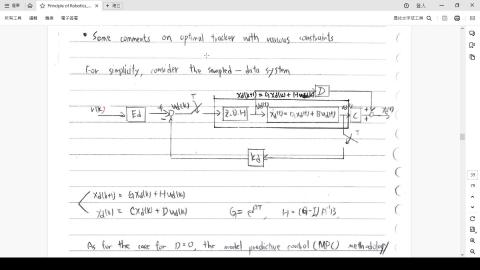 Principle of Robotics,...
登入
所有工具
編輯
轉換
電子簽署
• Some comments on optimal tracker with various constraints
For simplicity, consider the sampled-data system
D
xd(k+1) = Gxd(k) + Hud(k)
r(k)
Ed
ud(k)
T
Z.O.H
ẋd(t) = Axd(t) + Bud(t)
C
T
Kd
xd(k+1) = Gxd(k) + Hud(k)
yd(k) = Cxd(k) + Dud(k)
G = e^{AT}, H = (G-I)A^{-1}B,
As for the case for D=0, the model predictive control (MPC) methodology